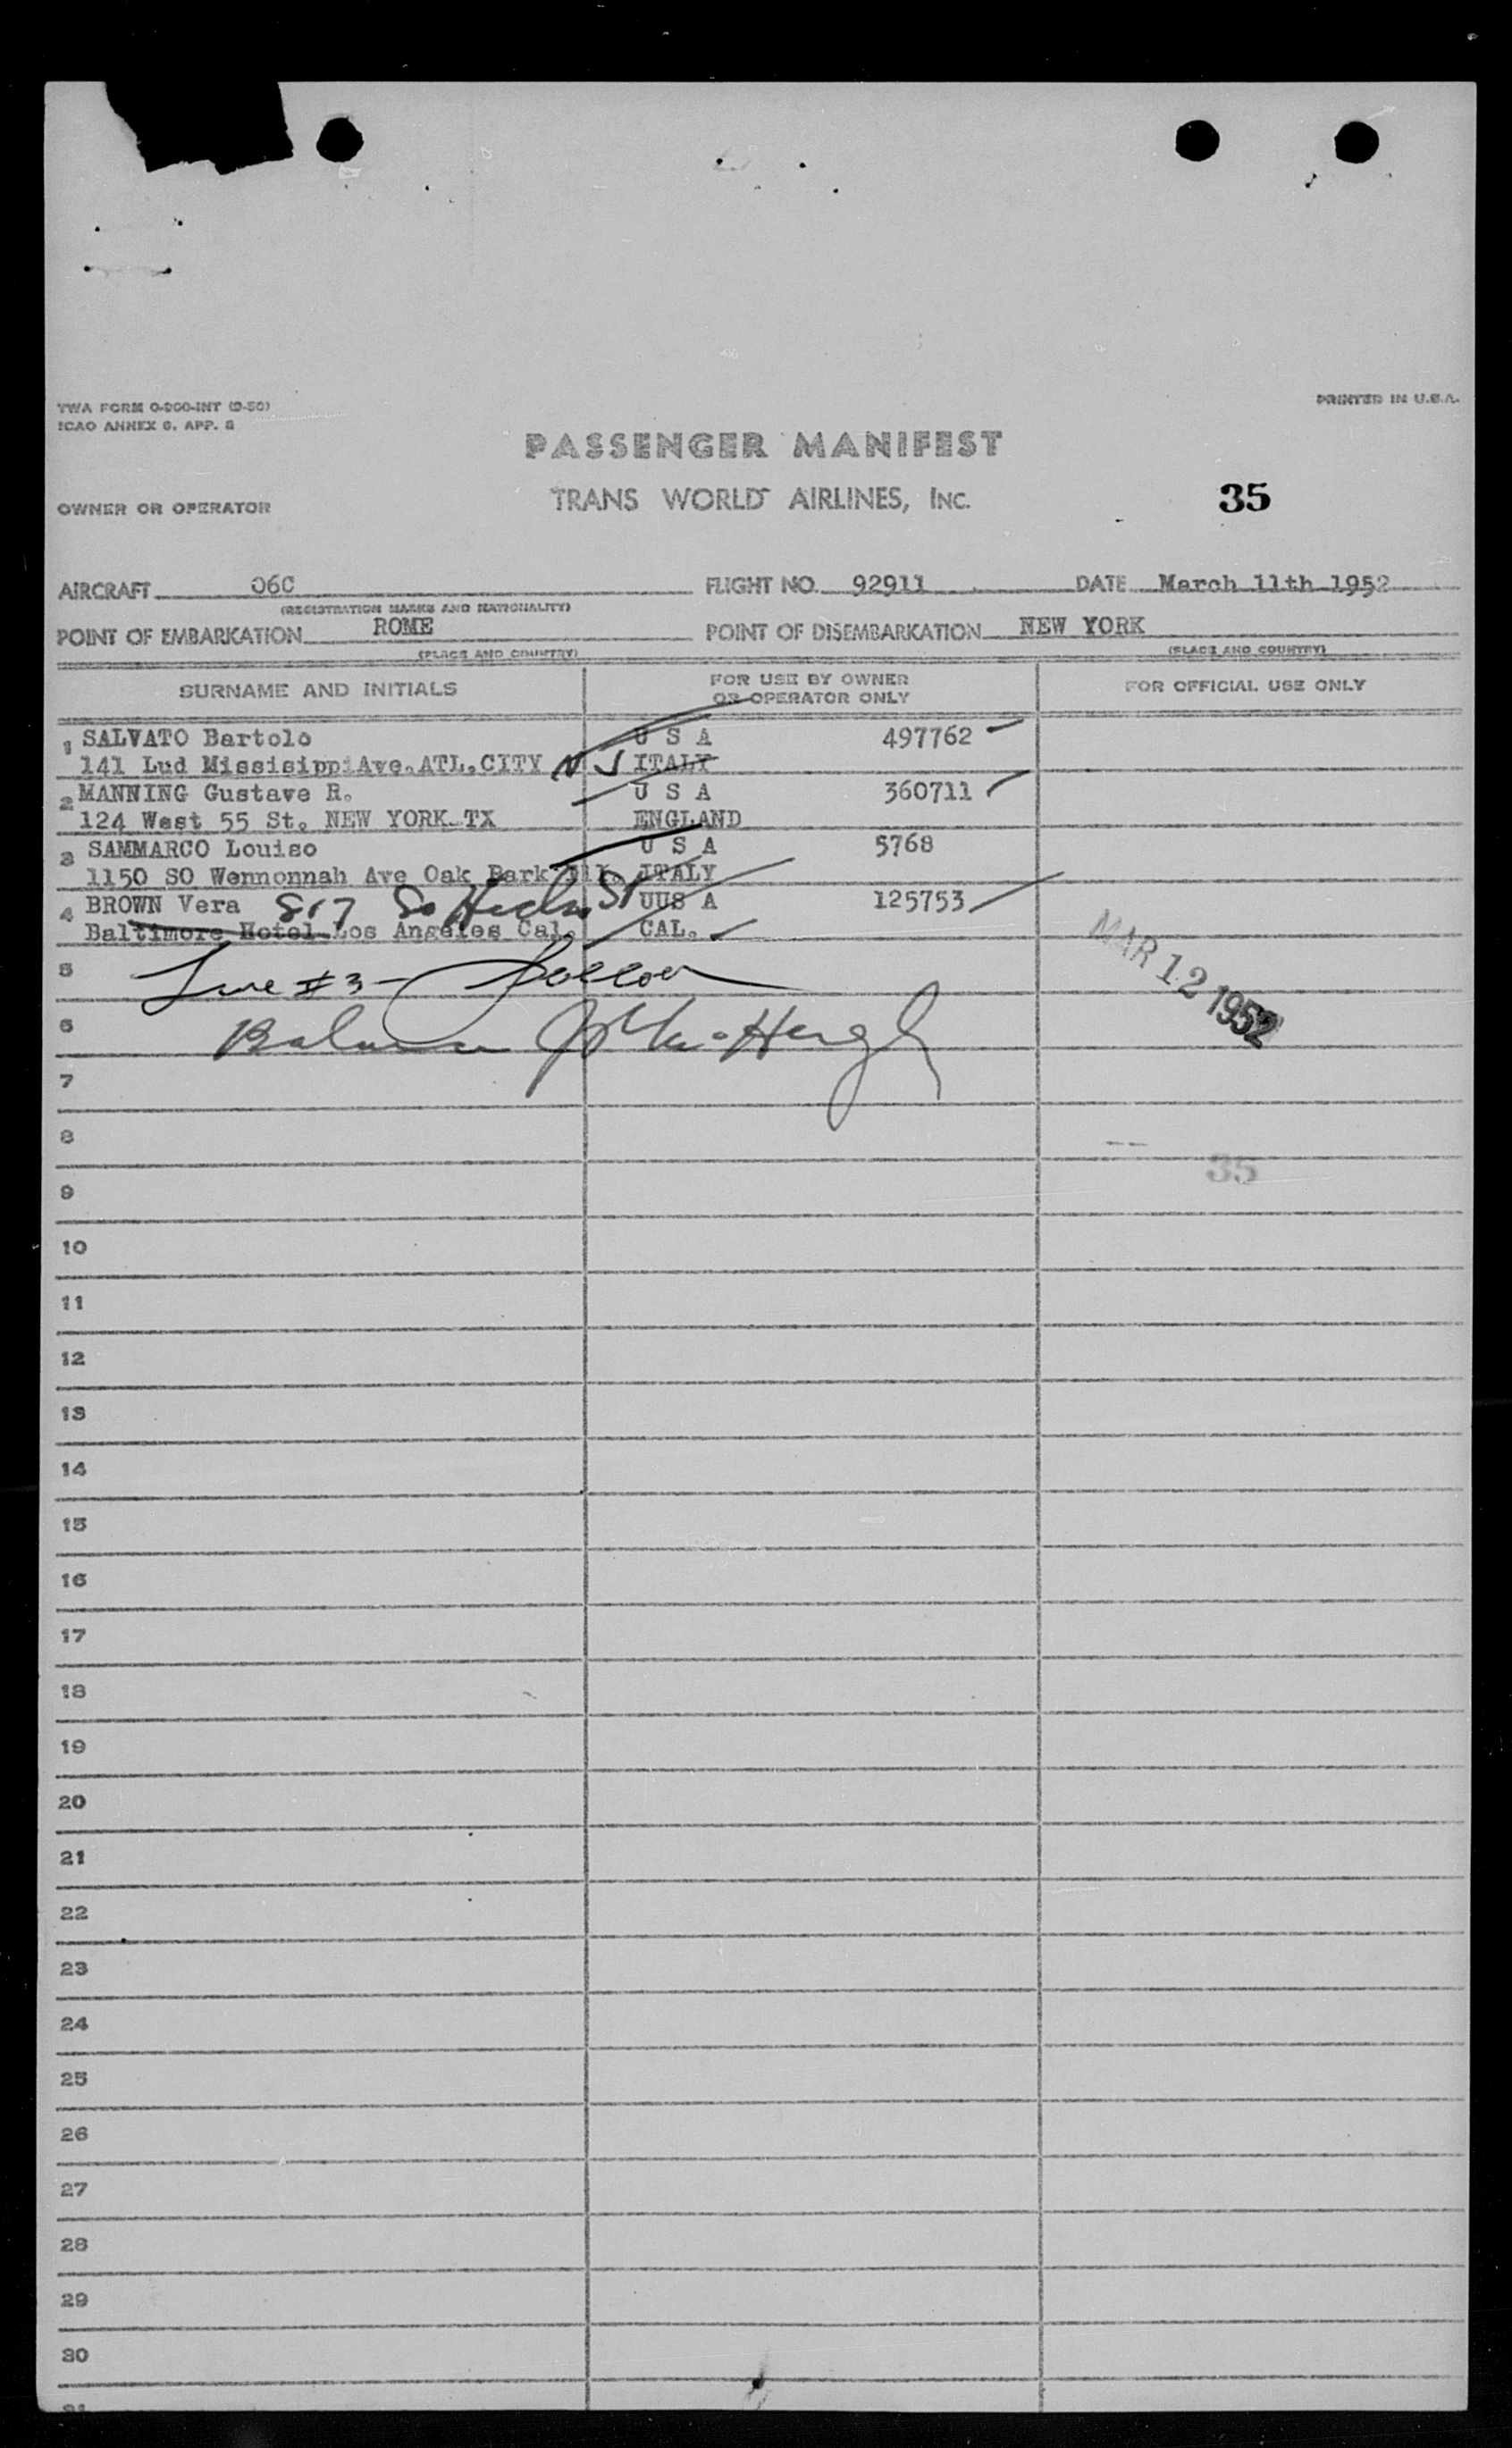 TWA FORM 0-900-INT (9-50)
PRINTED IN U.S.A.
ICAO ANNEX 9, APP. 8
PASSENGER MANIFEST
OWNER OR OPERATOR
TRANS WORLD AIRLINES, INC.
35
AIRCRAFT 06C FLIGHT NO. 92911 DATE March 11th 1952
(REGISTRATION MARKS AND NATIONALITY)
POINT OF EMBARKATION ROME POINT OF DISEMBARKATION NEW YORK
(PLACE AND COUNTRY) (PLACE AND COUNTRY)
SURNAME AND INITIALS FOR USE BY OWNER OR OPERATOR ONLY FOR OFFICIAL USE ONLY
1 SALVATO Bartolo U S A 497762
141 Lud MissisippiAve.ATL.CITY N J ITALY
2 MANNING Gustave R. U S A 360711
124 West 55 St. NEW YORK TX ENGLAND
3 SAMMARCO Louiso U S A 5768
1150 SO Wennonnah Ave Oak Park Ill. ITALY
4 BROWN Vera 817 So St UUS A 125753
Baltimore Hotel Los Angeles Cal. CAL.
MAR 12 1952
5 Line #3-
6
7
8
35
9
10
11
12
13
14
15
16
17
18
19
20
21
22
23
24
25
26
27
28
29
30